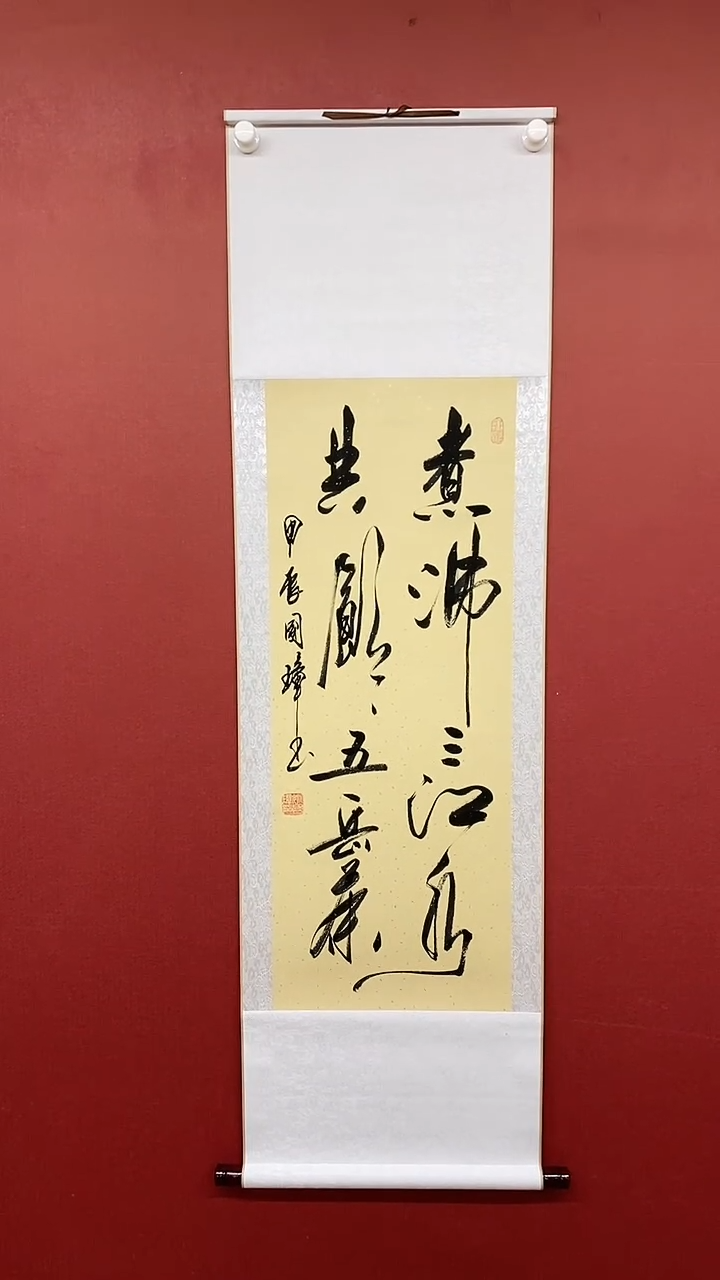 煮沸三江水
共顧五岳茶
甲辰國璋书